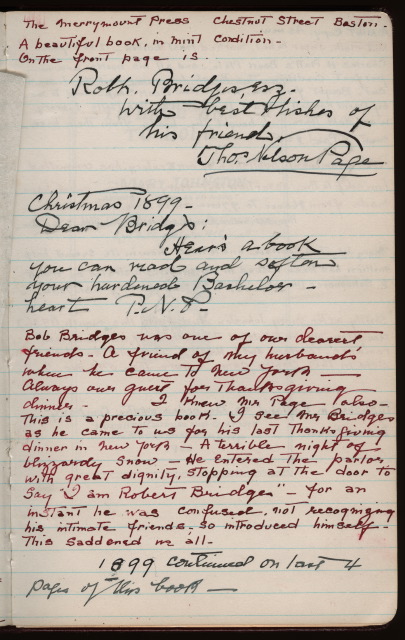 The Merrymount Press Chestnut Street Boston.
A beautiful book, in mint condition.
On the front page is.
Robt. Bridges, esq.
with best wishes of
his friend,
Thos. Nelson Page
Christmas 1899.
Dear Bridges:
Here's a book
you can read and soften
your hardened Bachelor
heart T.N.P.
Bob Bridges was one of our dearest
friends. A friend of my husband's
when he came to New York —
Always our guest for Thanksgiving
dinner. I knew Mr Page also.
This is a precious book. I see Mr Bridges
as he came to us for his last Thanksgiving
dinner in New York — A terrible night of
blizzardy snow — He entered the parlor
with great dignity, stopping at the door to
say "I am Robert Bridges" — for an
instant he was confused, not recognizing
his intimate friends. So introduced himself.
This saddened us all.
1899 continued on last 4
pages of this book —